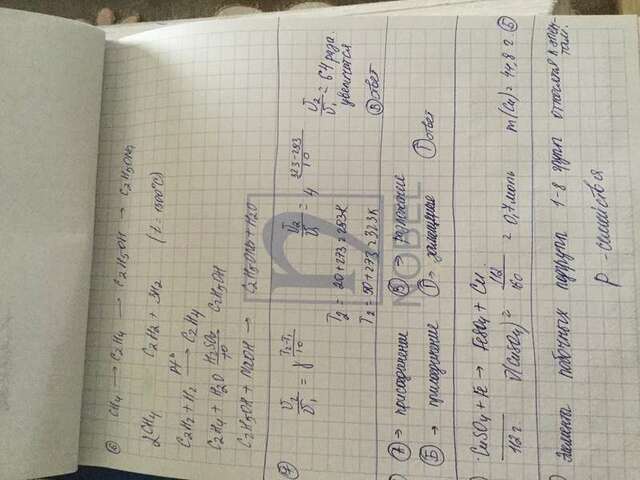 ⑥ CH4 → C2H4 → C2H5OH → C2H5ONa
2CH4 C2H2 + 3H2 (t = 1500°C)
C2H2 + H2 Pt° → C2H4
C2H4 + H2O H2SO4 → C2H5OH
C2H5OH + NaOH → C2H5ONa + H2O
⑦ V2/V1 = γ^(T2-T1/10) V2/V1 = 4^(323-293/10) V2/V1 = 64 раза.
увеличится
T2 = 20+273=283K
T2 = 50+273=323K В ответ
А → присоединение В → разложение
NOBEL
Б → присоединение Г → замещение Г ответ
CuSO4 + Fe → FeSO4 + Cu
112 г. V(CuSO4) = 112/160 = 0,7 моль m(Cu) = 44,8 г. Б
Элементы побочных подгрупп 1-8 групп относятся к элем-
там.
p - семейства